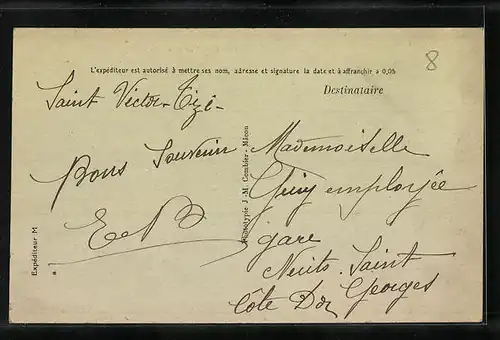 L'expéditeur est autorisé à mettre ses nom, adresse et signature la date et à affranchir à 0,05
8
Destinataire
Saint Victor-Tizé-
Bons Souvenirs
E. B
Expéditeur M
Phototypie J.-M. Combier - Mâcon
Mademoiselle
Guiy employée
gare
Nuits. Saint
Georges
Côte Dor